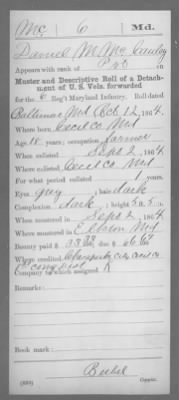 Mc | 6 | Md.
Daniel M. McCauley
Appears with rank of Pvt on
Muster and Descriptive Roll of a Detach-
ment of U. S. Vols. forwarded
for the 6 Reg't Maryland Infantry. Roll dated
Baltimore Md Oct 12, 1864.
Where born Cecil Co Md
Age 18 years; occupation farmer
When enlisted Sept 2, 1864.
Where enlisted Cecil Co Md
For what period enlisted 1 years.
Eyes Grey; hair dark
Complexion dark; height 5 ft. 5 in.
When mustered in Sept 2, 1864.
Where mustered in Md
Bounty paid $ 33 33/100; due $ 66 67/100
Where credited Cecil Co
1st Cong Dist
Company to which assigned K
Remarks:
Book mark:
(339) Copyist.